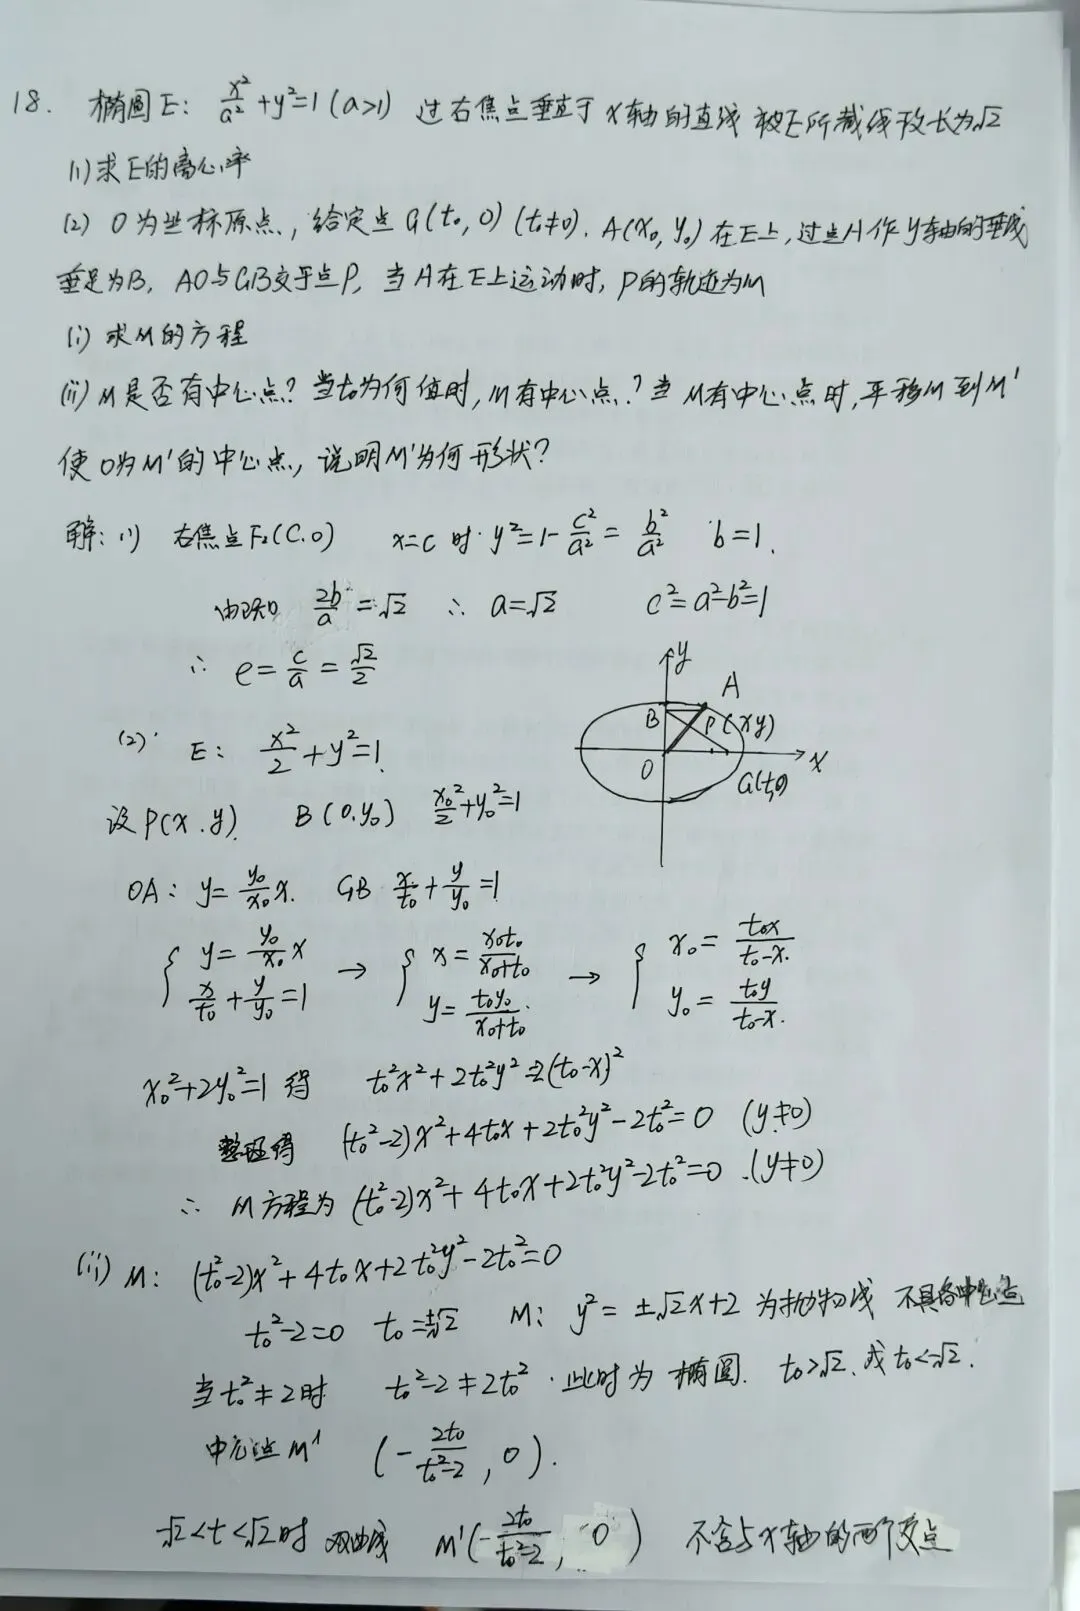 18. 椭圆E: x²/a²+y²=1(a>1) 过右焦点垂直于x轴的直线被E所截线段长为√2
(1)求E的离心率
(2) O为坐标原点, 给定点G(t₀, 0) (t₀≠0). A(x₀, y₀)在E上, 过点A作y轴的垂线
垂足为B, AO与GB交于点P, 当A在E上运动时, P的轨迹为M
(i) 求M的方程
(ii) M是否有中心点? 当t₀为何值时, M有中心点? 当M有中心点时, 平移M到M'
使O为M'的中心点, 说明M'为何形状?
解: (1) 右焦点F₂(C,0) x=c时 y²=1-c²/a²=b²/a² b=1.
由已知 2b²/a=√2 ∴ a=√2 c²=a²-b²=1
∴ e=c/a=√2/2
(2) E: x²/2+y²=1.
设P(x,y) B(0,y₀) x₀²/2+y₀²=1
y
A
B
P(x,y)
O
x
G(t,0)
OA: y=y₀/x₀ x. GB x/t₀+y/y₀=1
{ y=y₀/x₀ x → { x=x₀t₀/(x₀+t₀) → { x₀=t₀x/(t₀-x).
x/t₀+y/y₀=1 y=t₀y₀/(x₀+t₀) y₀=t₀y/(t₀-x).
x₀²+2y₀²=1得 t₀²x²+2t₀²y²=2(t₀-x)²
整理得 (t₀²-2)x²+4t₀x+2t₀²y²-2t₀²=0 (y≠0)
∴ M方程为 (t₀²-2)x²+4t₀x+2t₀²y²-2t₀²=0 (y≠0)
(ii) M: (t₀²-2)x²+4t₀x+2t₀²y²-2t₀²=0
t₀²-2=0 t₀=±√2 M: y²=±√2x+2 为抛物线 不具备中心点
当t₀²≠2时 t₀²-2≠2t₀². 此时为椭圆. t₀>√2. 或t₀<-√2.
中心点M' (-2t₀/(t₀²-2), 0).
-√2<t<√2时 双曲线 M'(-2t₀/(t₀²-2), 0) 不含与x轴的两个交点